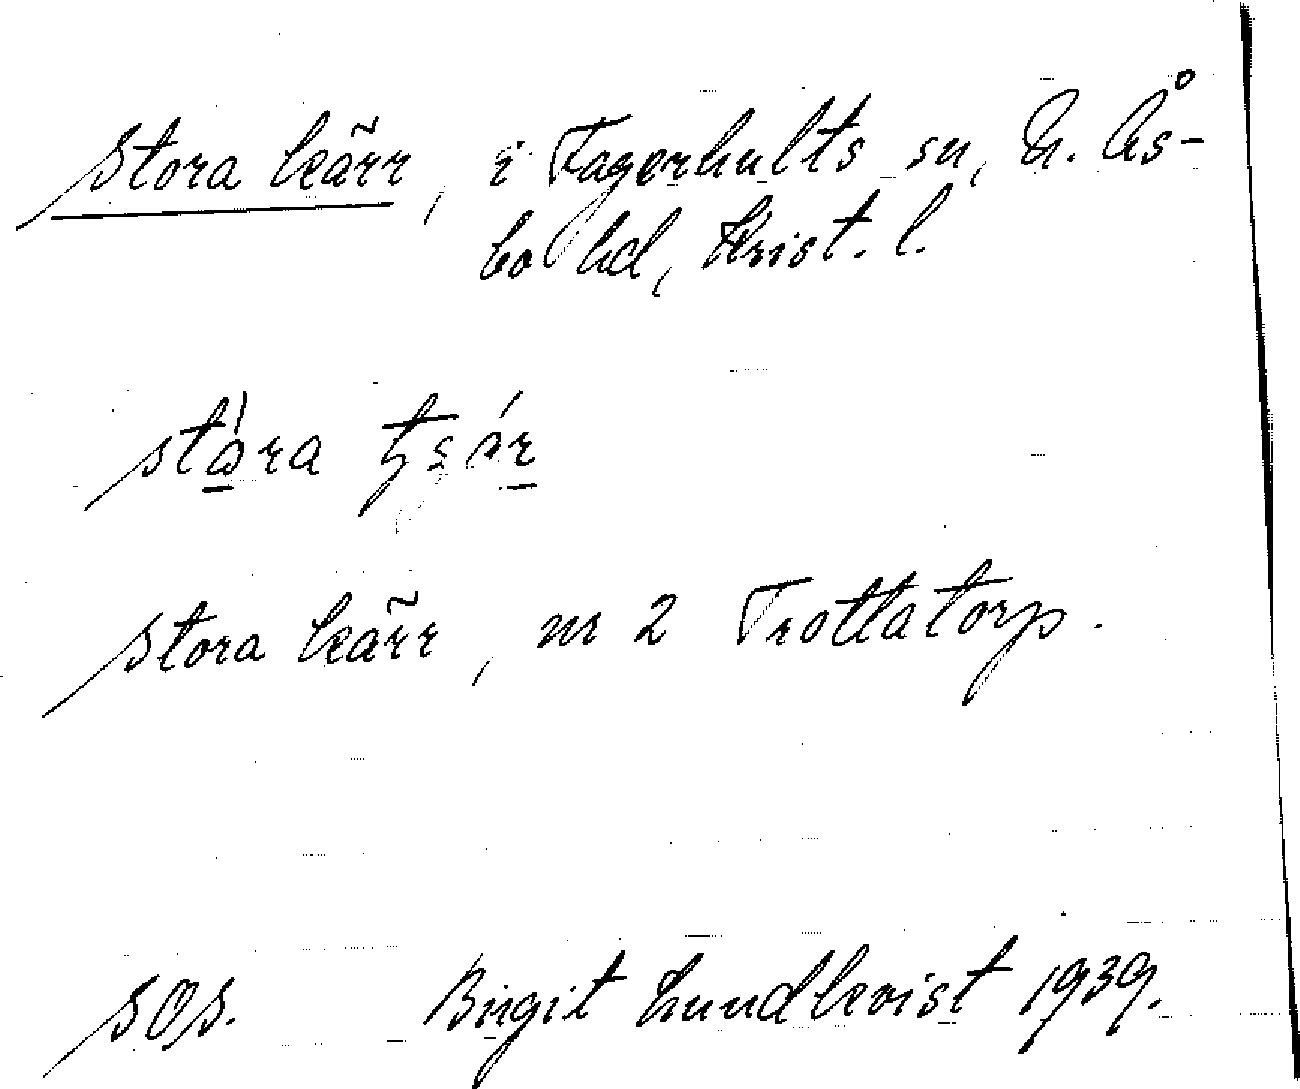 Stora kärr, i Fagerhults sn, N. Ås-
bo hd, Krist. l.
stora
Stora kärr, nr 2 Trottatorp.
sos. Birgit Lundkvist 1939.